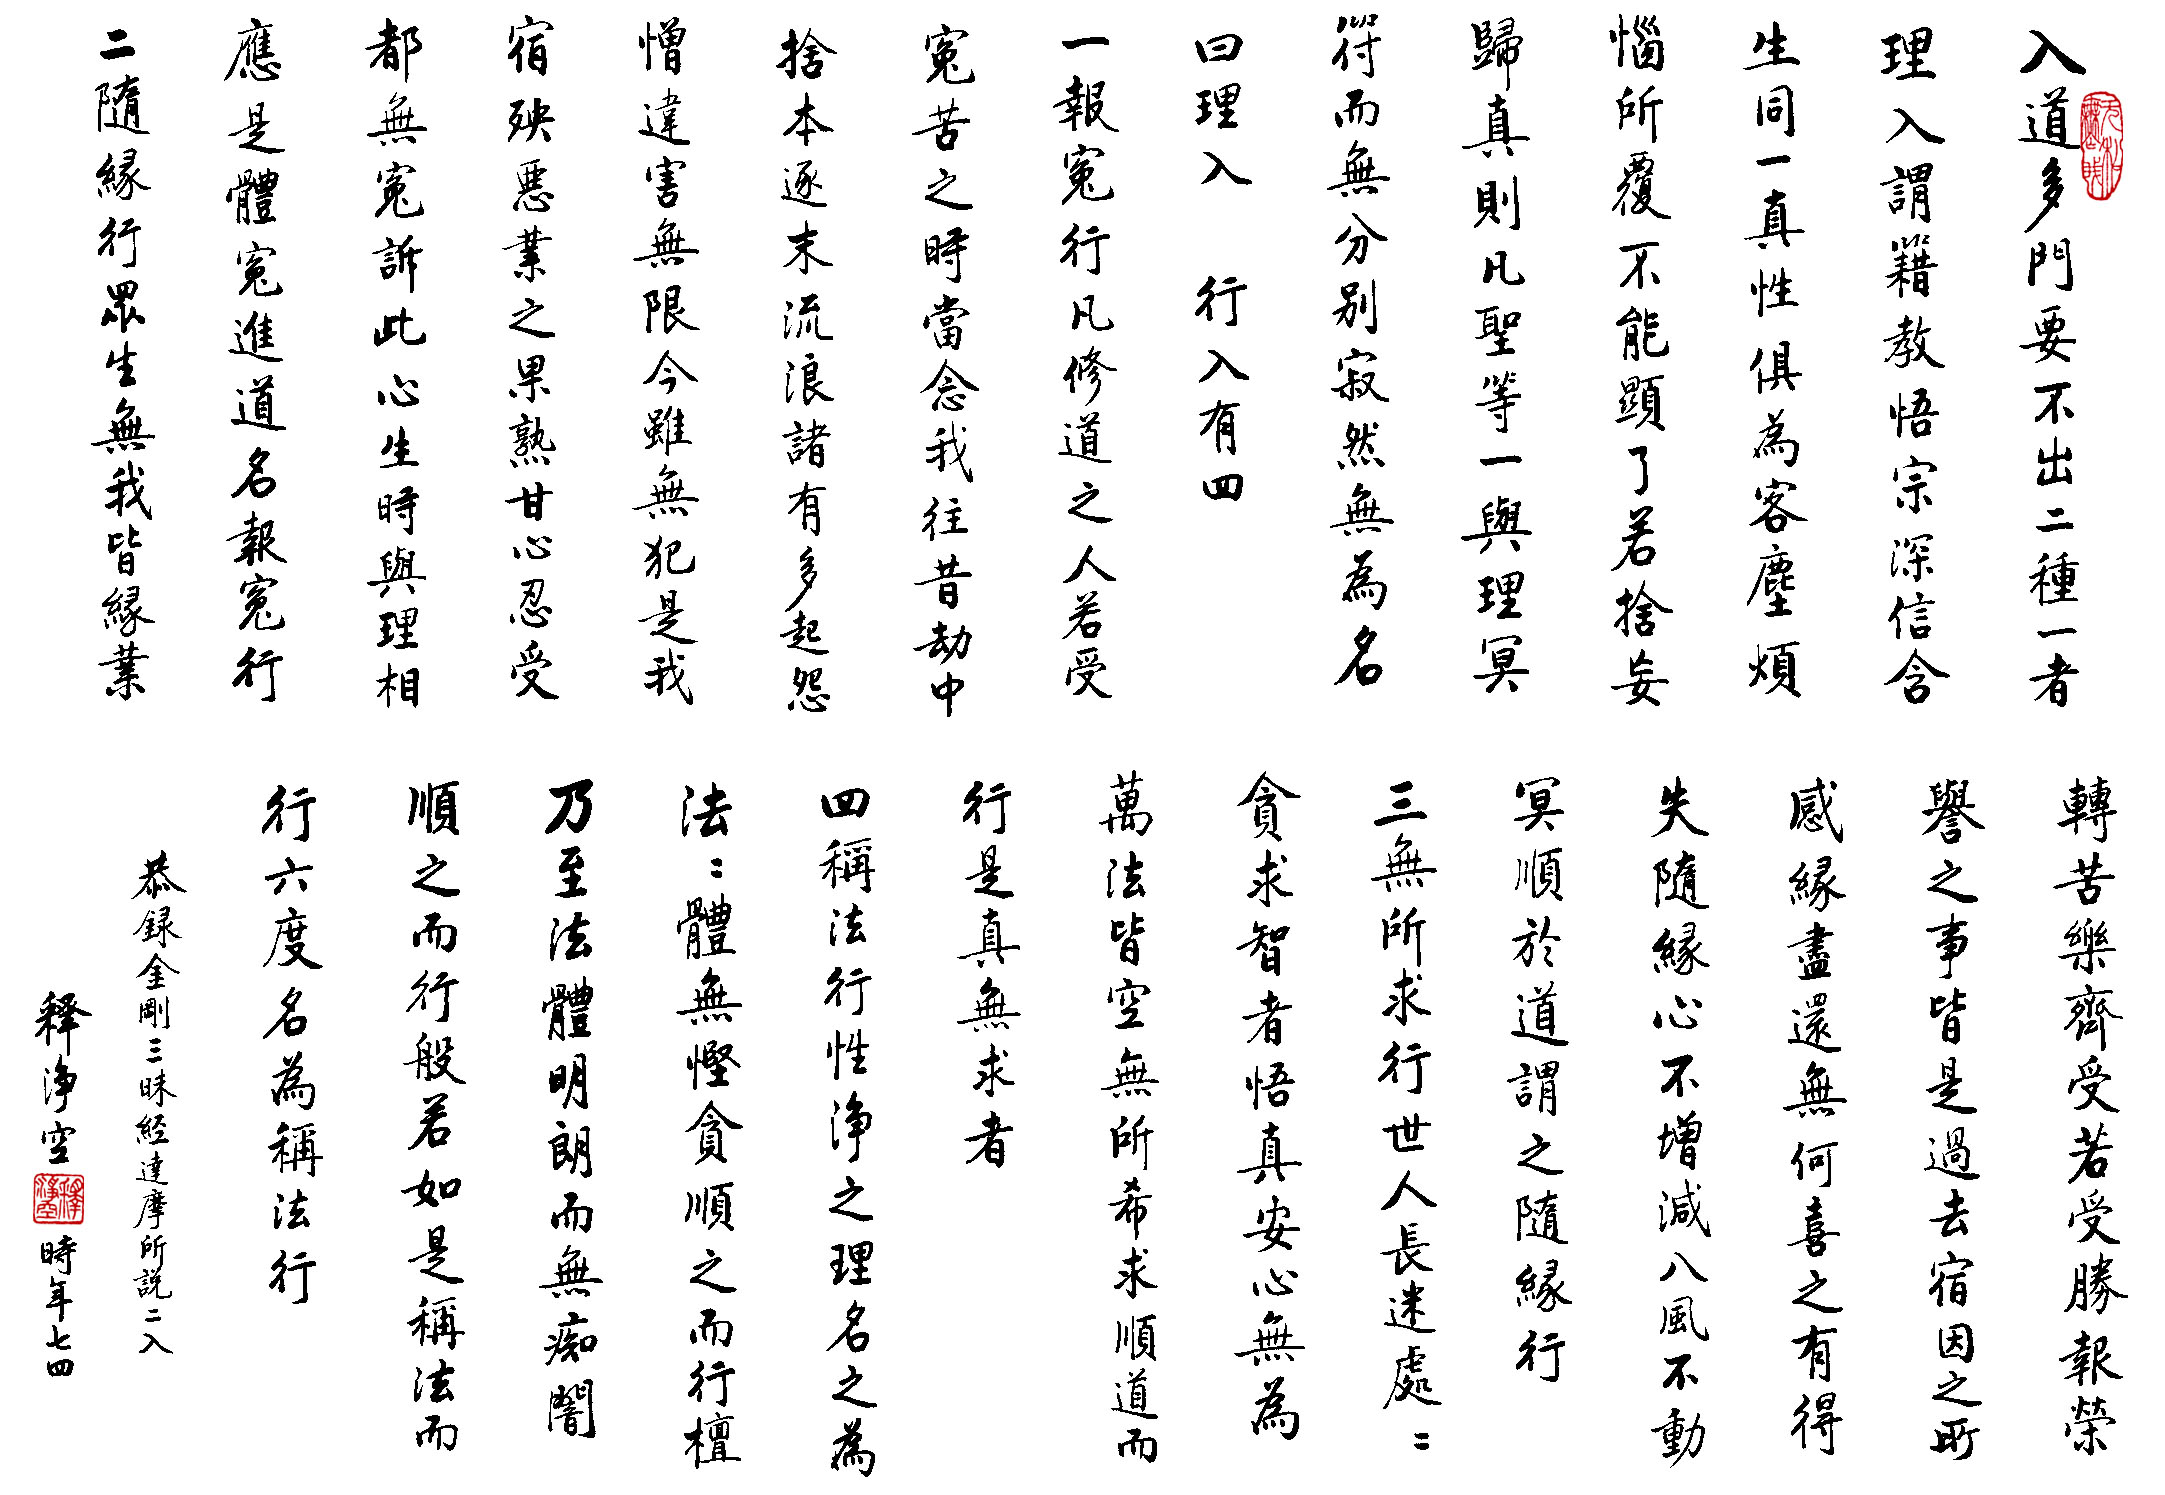 入道多門要不出二種一者
理入謂籍教悟宗深信含
生同一真性俱為客塵煩
惱所覆不能顯了若捨妄
歸真則凡聖等一與理冥
符而無分別寂然無為名
曰理入 行入有四
一報冤行凡修道之人若受
冤苦之時當念我往昔劫中
捨本逐末流浪諸有多起怨
憎違害無限今雖無犯是我
宿殃惡業之果熟甘心忍受
都無冤訴此心生時與理相
應是體冤進道名報冤行
二隨緣行眾生無我皆緣業
轉苦樂齊受若受勝報榮
譽之事皆是過去宿因之所
感緣盡還無何喜之有得
失隨緣心不增減八風不動
冥順於道謂之隨緣行
三無所求行世人長迷處〻
貪求智者悟真安心無為
萬法皆空無所希求順道而
行是真無求者
四稱法行性淨之理名之為
法〻體無慳貪順之而行檀
乃至法體明朗而無痴闇
順之而行般若如是稱法而
行六度名為稱法行
恭録金剛三昧経達摩所説二入
释净空
釋淨空
時年七四